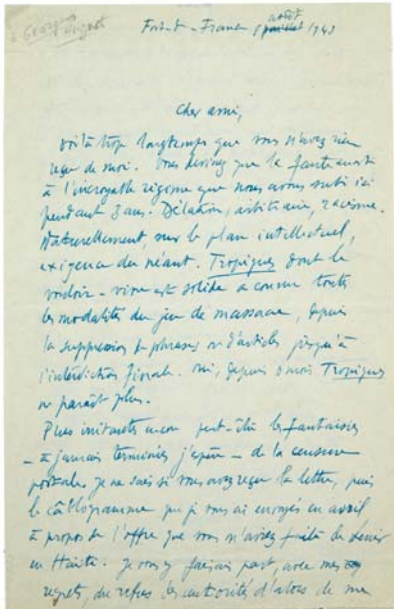 à Georges
Hugnet
Fort-d-France 1 août juillet 1943
Cher ami,
voilà trop longtemps que vous n'avez rien
reçu de moi. Vous devinez que la faute en est
à l'incroyable régime que nous avons subi ici
pendant 3 ans. Délation, arbitraire, racisme.
Naturellement, sur le plan intellectuel,
exigence du néant. Tropiques dont le
vouloir-vivre est solide a connu toutes
les modalités du jeu de massacre, depuis
la suppression de phrases ou d'articles jusqu'à
l'interdiction finale. Oui, depuis mois Tropiques
ne paraît plus.
Plus irritantes encore peut-être les fantaisies
- à jamais terminées j'espère - de la censure
postale. Je ne sais si vous avez reçu la lettre, puis
le câblogramme que je vous ai envoyés en avril
à propos de l'offre que vous m'aviez faite de venir
en Haïti. Je vous y faisais part, avec mes
regrets, du refus des autorités d'alors de me